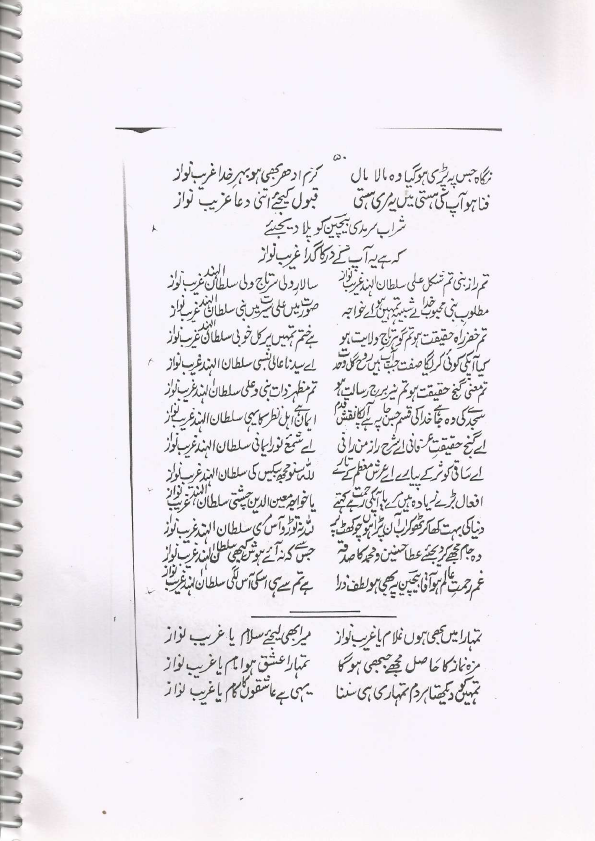 ۵۰
نگاہ جس پہ پڑی ہو گیا وہ مالا مال کرم ادھر بھی ہو بہر خدا غریب نواز
فنا ہو آپ کی ہستی میں یہ مری ہستی قبول کیجے اتنی دعا غریب نواز
شراب سرمدی بیچین کو پلا دیجئے
کہ ہے یہ آپ کے در کا گدا غریب نواز
تم راز نبی تم شکل علی سلطان الہند غریب نواز سالار ولی سرتاج ولی سلطان الہند غریب نواز
مطلوب نبی محبوب خدا شبیہ تمہیں ہو اے خواجہ صورت میں علی سیرت میں نبی سلطان الہند غریب نواز
تم خضر راہ حقیقت ہو تم گو سرتاج ولایت ہو ہے ختم تمہیں پر کل خوبی سلطان الہند غریب نواز
کیا آپکی کوئی کر لیگا صفت جب آپ ہیں روح گل وحدت اے سیدنا عالی نسبی سلطان الہند غریب نواز
تم معنی گنج حقیقت ہو تم نیر برج رسالت ہو تم مظہر ذات نبی و علی سلطان الہند غریب نواز
سجدے کی وہ جا ہے خدا کی قسم جس جا پہ ہے آپکا نقش قدم ایمان ہے اہل نظر کا یہی سلطان الہند غریب نواز
اے گنج حقیقت عرفانی اے شرح راز من رانی اے شمع نور ایمانی سلطان الہند غریب نواز
اے ساقی کوثر کے پیارے اے عرش معظم کے تارے للہ سنو مجھ بیکس کی سلطان الہند غریب نواز
افعال بڑے زیادہ ہیں مرے یا آپکی رحمت ہے کہئے یا خواجہ معین الدین چشتی سلطان الہند غریب نواز
دنیا کی بہت کھا کر ٹھوکر اب آن پڑا ہوں چوکھٹ پر للہ نہ توڑو آس مری سلطان الہند غریب نواز
وہ جام مجھے کر دیجئے عطا حسنین و محمد کا صدقہ جس سے کہ نہ آئے ہوش کبھی سلطان الہند غریب نواز
غم رحمت عالم ہو آقا بیچین پہ بھی ہو لطف ذرا ہے تم سے ہی اسکی آس لگی سلطان الہند غریب نواز
تمہارا میں بھی ہوں غلام یا غریب نواز میرا بھی لیجئے سلام یا غریب نواز
مزہ نماز کا حاصل مجھے جبھی ہوگا تمہارا عشق ہو امام یا غریب نواز
تمہیکو دیکھنا ہر دم تمہاری ہی سننا یہی ہے عاشقوں کا کام یا غریب نواز